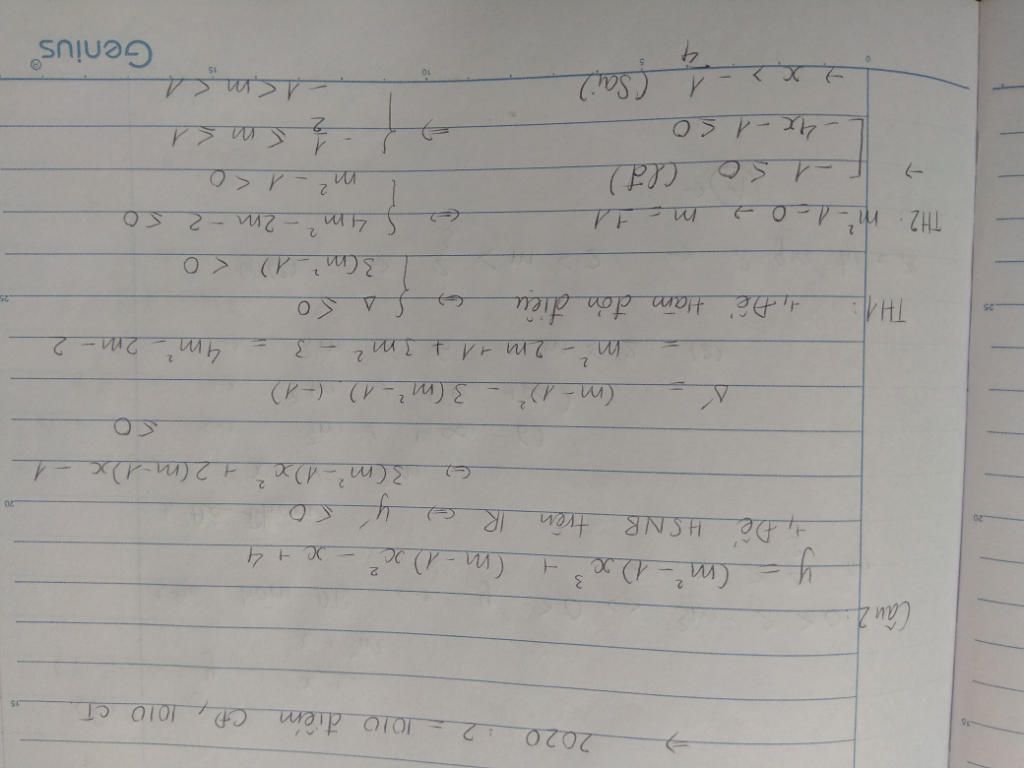 => 2020 : 2 = 1010 điểm CĐ, 1010 CT.
Câu 2:
y = (m² - 1)x³ + (m - 1)x² - x + 4
+, Để HSNB trên R <=> y' ≤ 0
<=> 3(m² - 1)x² + 2(m - 1)x - 1
≤ 0
Δ' = (m - 1)² - 3(m² - 1).(-1)
= m² - 2m + 1 + 3m² - 3 = 4m² - 2m - 2
TH1: +, Để hàm đơn điệu <=> { Δ ≤ 0
3(m² - 1) < 0
<=> { 4m² - 2m - 2 ≤ 0
m² - 1 < 0
=> { -1/2 ≤ m ≤ 1
-1 < m < 1
TH2: m² - 1 = 0 → m = ±1
→ [ -1 ≤ 0 (lđ)
-4x - 1 ≤ 0
→ x > -1/4 (Sai)
Genius